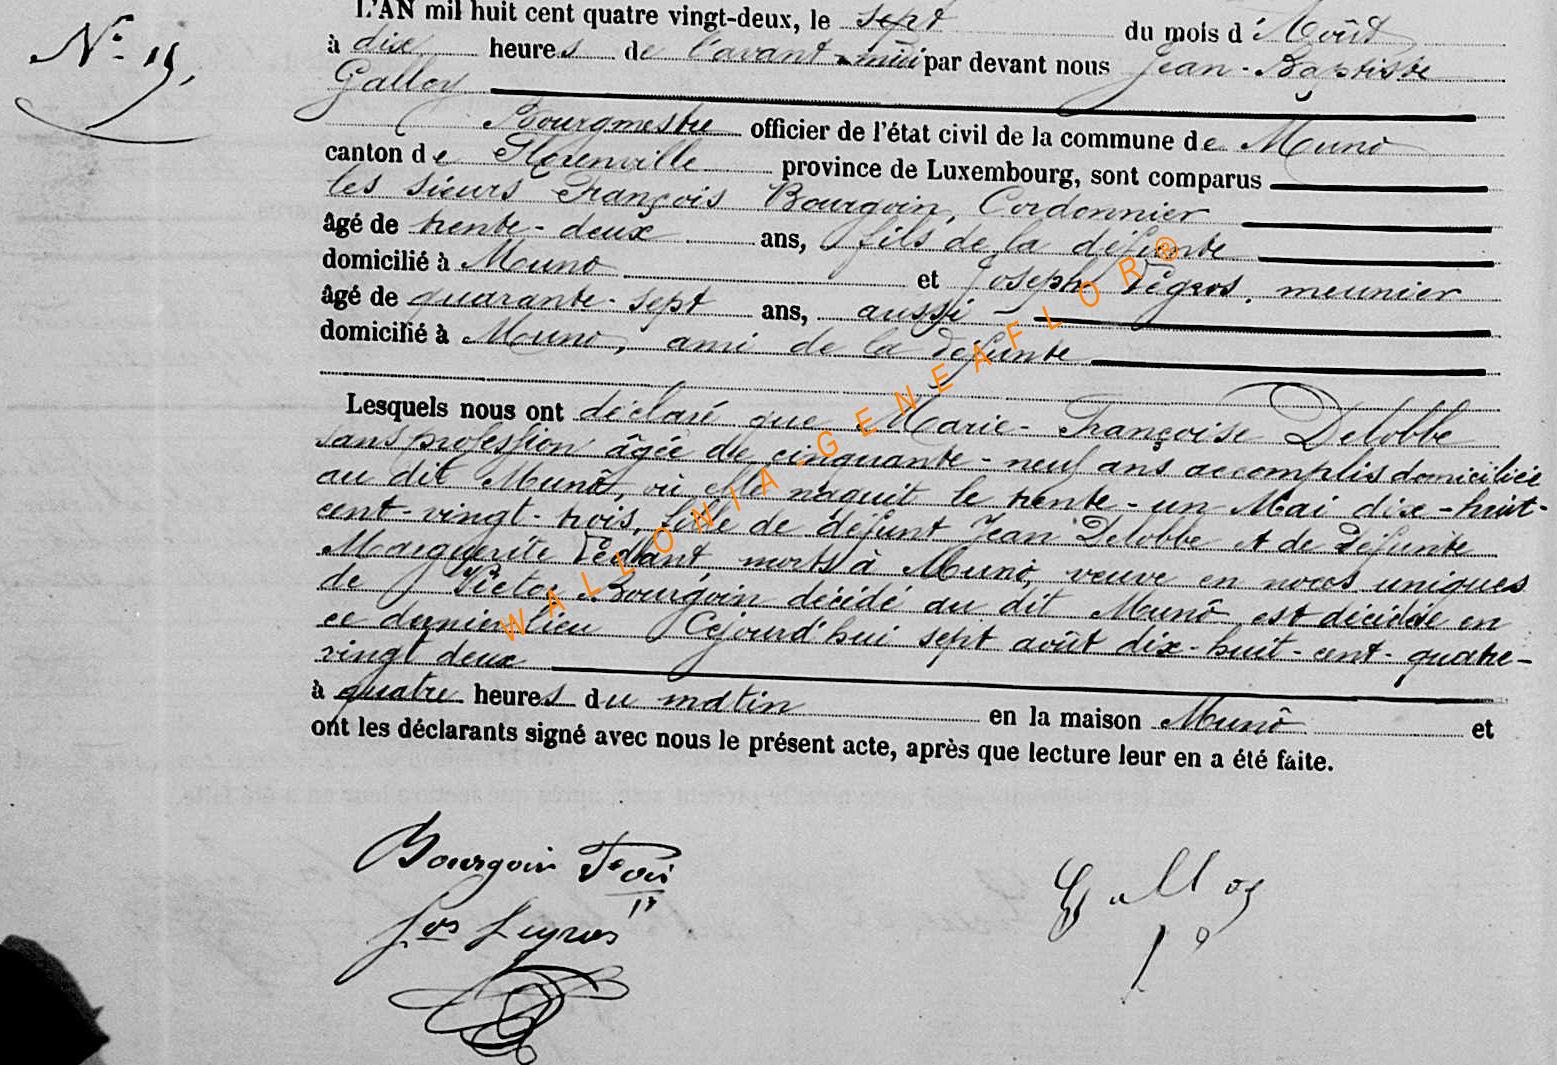 N° 19,
L'AN mil huit cent quatre vingt-deux, le sept du mois d'Août
à dix heures de l'avant-midi par devant nous Jean-Baptiste
Galloy
Bourgmestre officier de l'état civil de la commune de Muno
canton de Florenville province de Luxembourg, sont comparus
les sieurs François Bourgoin, Cordonnier
âgé de trente-deux ans, fils de la défunte
domicilié à Muno et Joseph Légros, meunier
âgé de quarante-sept ans, aussi
domicilié à Muno, ami de la défunte
Lesquels nous ont déclaré que Marie-Françoise Delobbe
sans profession âgée de cinquante-neuf ans accomplis domiciliée
au dit Munô, où elle naquit le trente-un Mai dix-huit-
cent-vingt-trois, fille de défunt Jean Delobbe et de défunte
Marguerite morts à Muno, veuve en noces uniques
de Victor Bourgoin décédé au dit Munô est décédée en
ce dernier lieu Cejourd'hui sept août dix-huit-cent-quatre-
vingt deux
à quatre heures du matin en la maison Munô et
ont les déclarants signé avec nous le présent acte, après que lecture leur en a été faite.
Bourgoin Fçois
Jos Legros
Galloy
WALLONIA-GENEAFLOR®